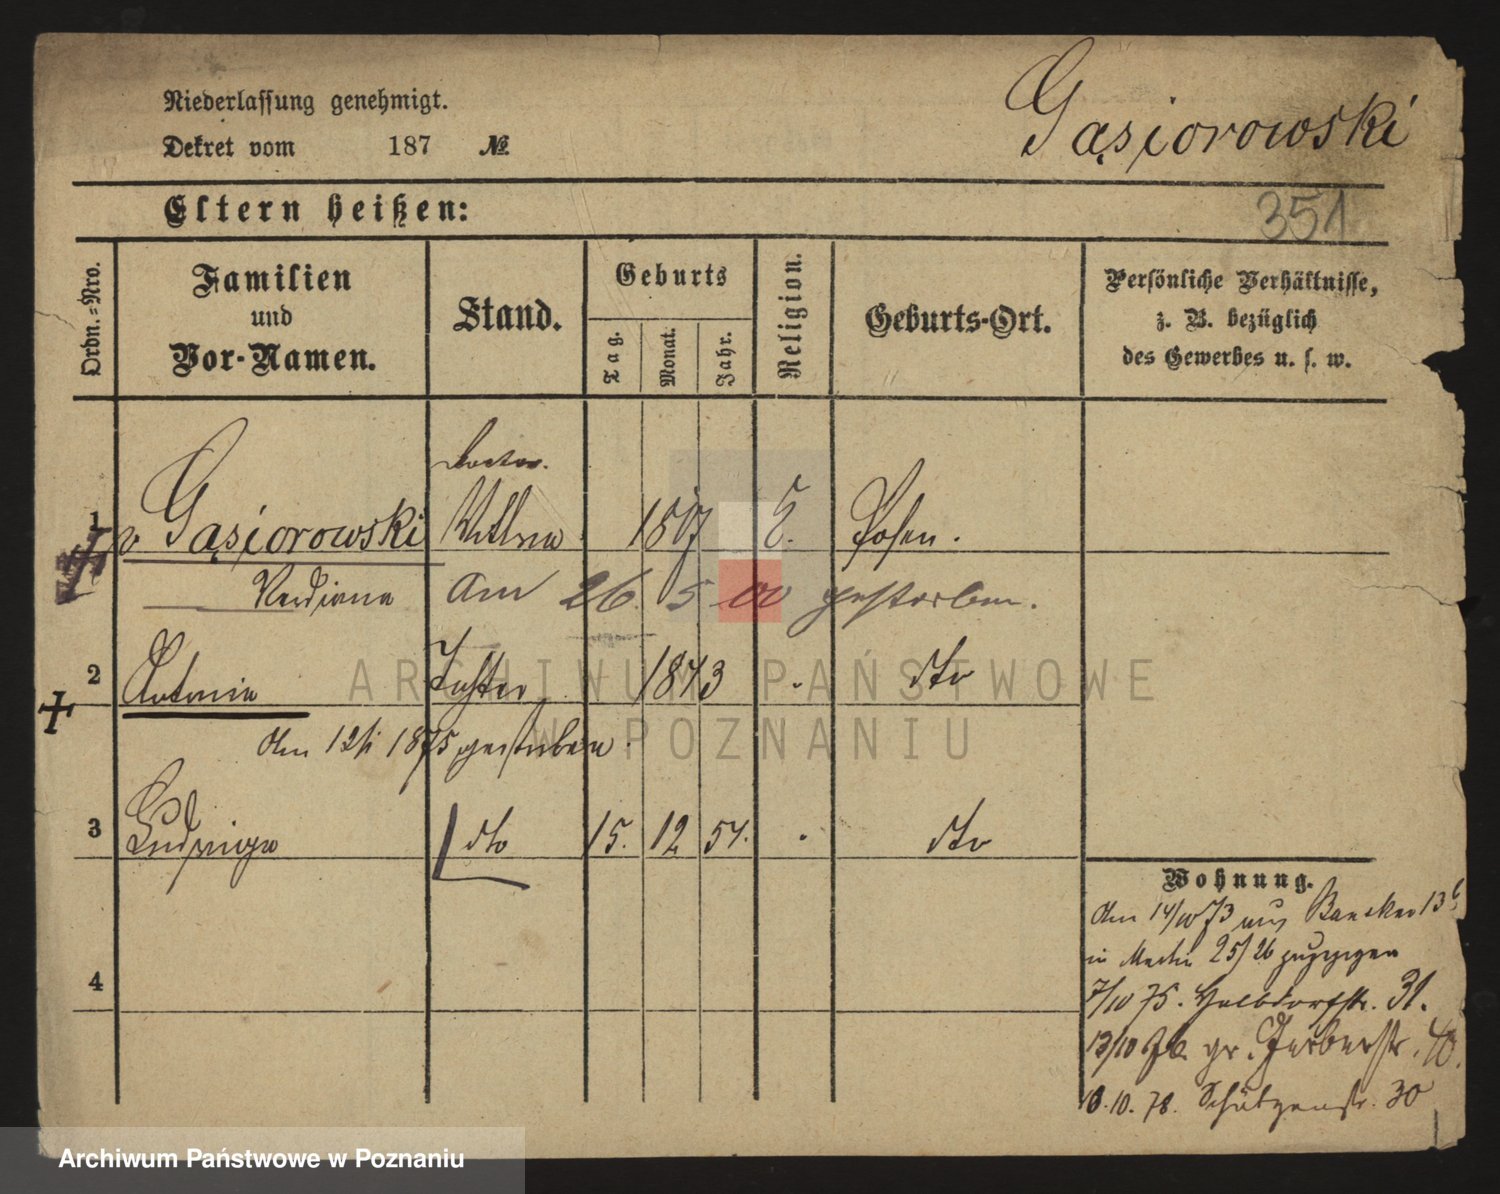 Niederlassung genehmigt.
Dekret vom 187 №
Gąsiorowski
351
Eltern heißen:
Ordn.-Nro.
Familien
und
Vor-Namen.
Stand.
Geburts
Tag.
Monat.
Jahr.
Religion.
Geburts-Ort.
Persönliche Verhältnisse,
z. B. bezüglich
des Gewerbes u. s. w.
Doctor.
1 v Gąsiorowski Wittwe 1807 Posen.
am 26. 5 00 gestorben.
2 Antonia Tochter 1843 dto
Am 12/ 1875 gestorben.
3 Ludwiga dto 15. 12 54. dto
Wohnung.
Am 14/10 73 aus Baecker 13
in Martin 25/26 gezogen
7/10 75. Halbdorfstr. 31.
13/10 76 gr. Gerberstr. 40.
10. 78. Schützenstr. 30
4
ARCHIWUM PAŃSTWOWE
W POZNANIU
Archiwum Państwowe w Poznaniu